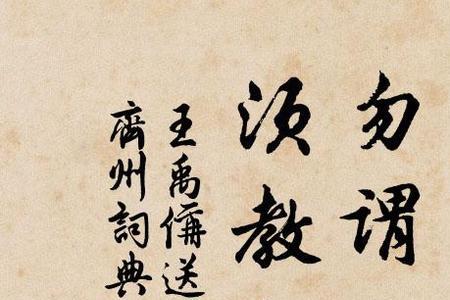 勿谓
须教
王禹偁送
齊州詞典